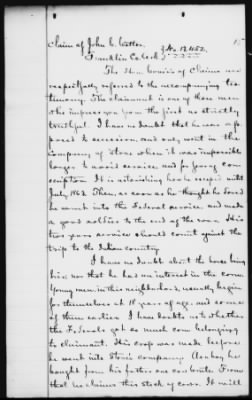 Claim of John C. Cotten, } No. 12,452.
Franklin Co. Ala.
The Hon. Comrs. of Claims are
respectfully referred to the accompanying tes-
timony. The claimant is one of those men
who impress you from the first as strictly
truthful. I have no doubt that he was op-
posed to secession, and only went in this
company of Stone when it was impossible
longer to avoid service and for fear of con-
scription. It is astonishing how he escaped until
July 1862. Then, as soon as he thought he dared
he went into the Federal service, and made
a good soldier to the end of the war. His
two years service should count against the
trip to the Indian country.
I have no doubt about the horse being
his nor that he had an interest in the corn.
Young men in this neighborhood, usually begin
for themselves at 18 years of age, and some
of them earlier. I have doubts as to whether
the Federals got so much corn belonging
to claimant. His crop was made before
he went into Stone's company. Also he
bought from his father one cow brute. From
that he claims this stock of cows. It will